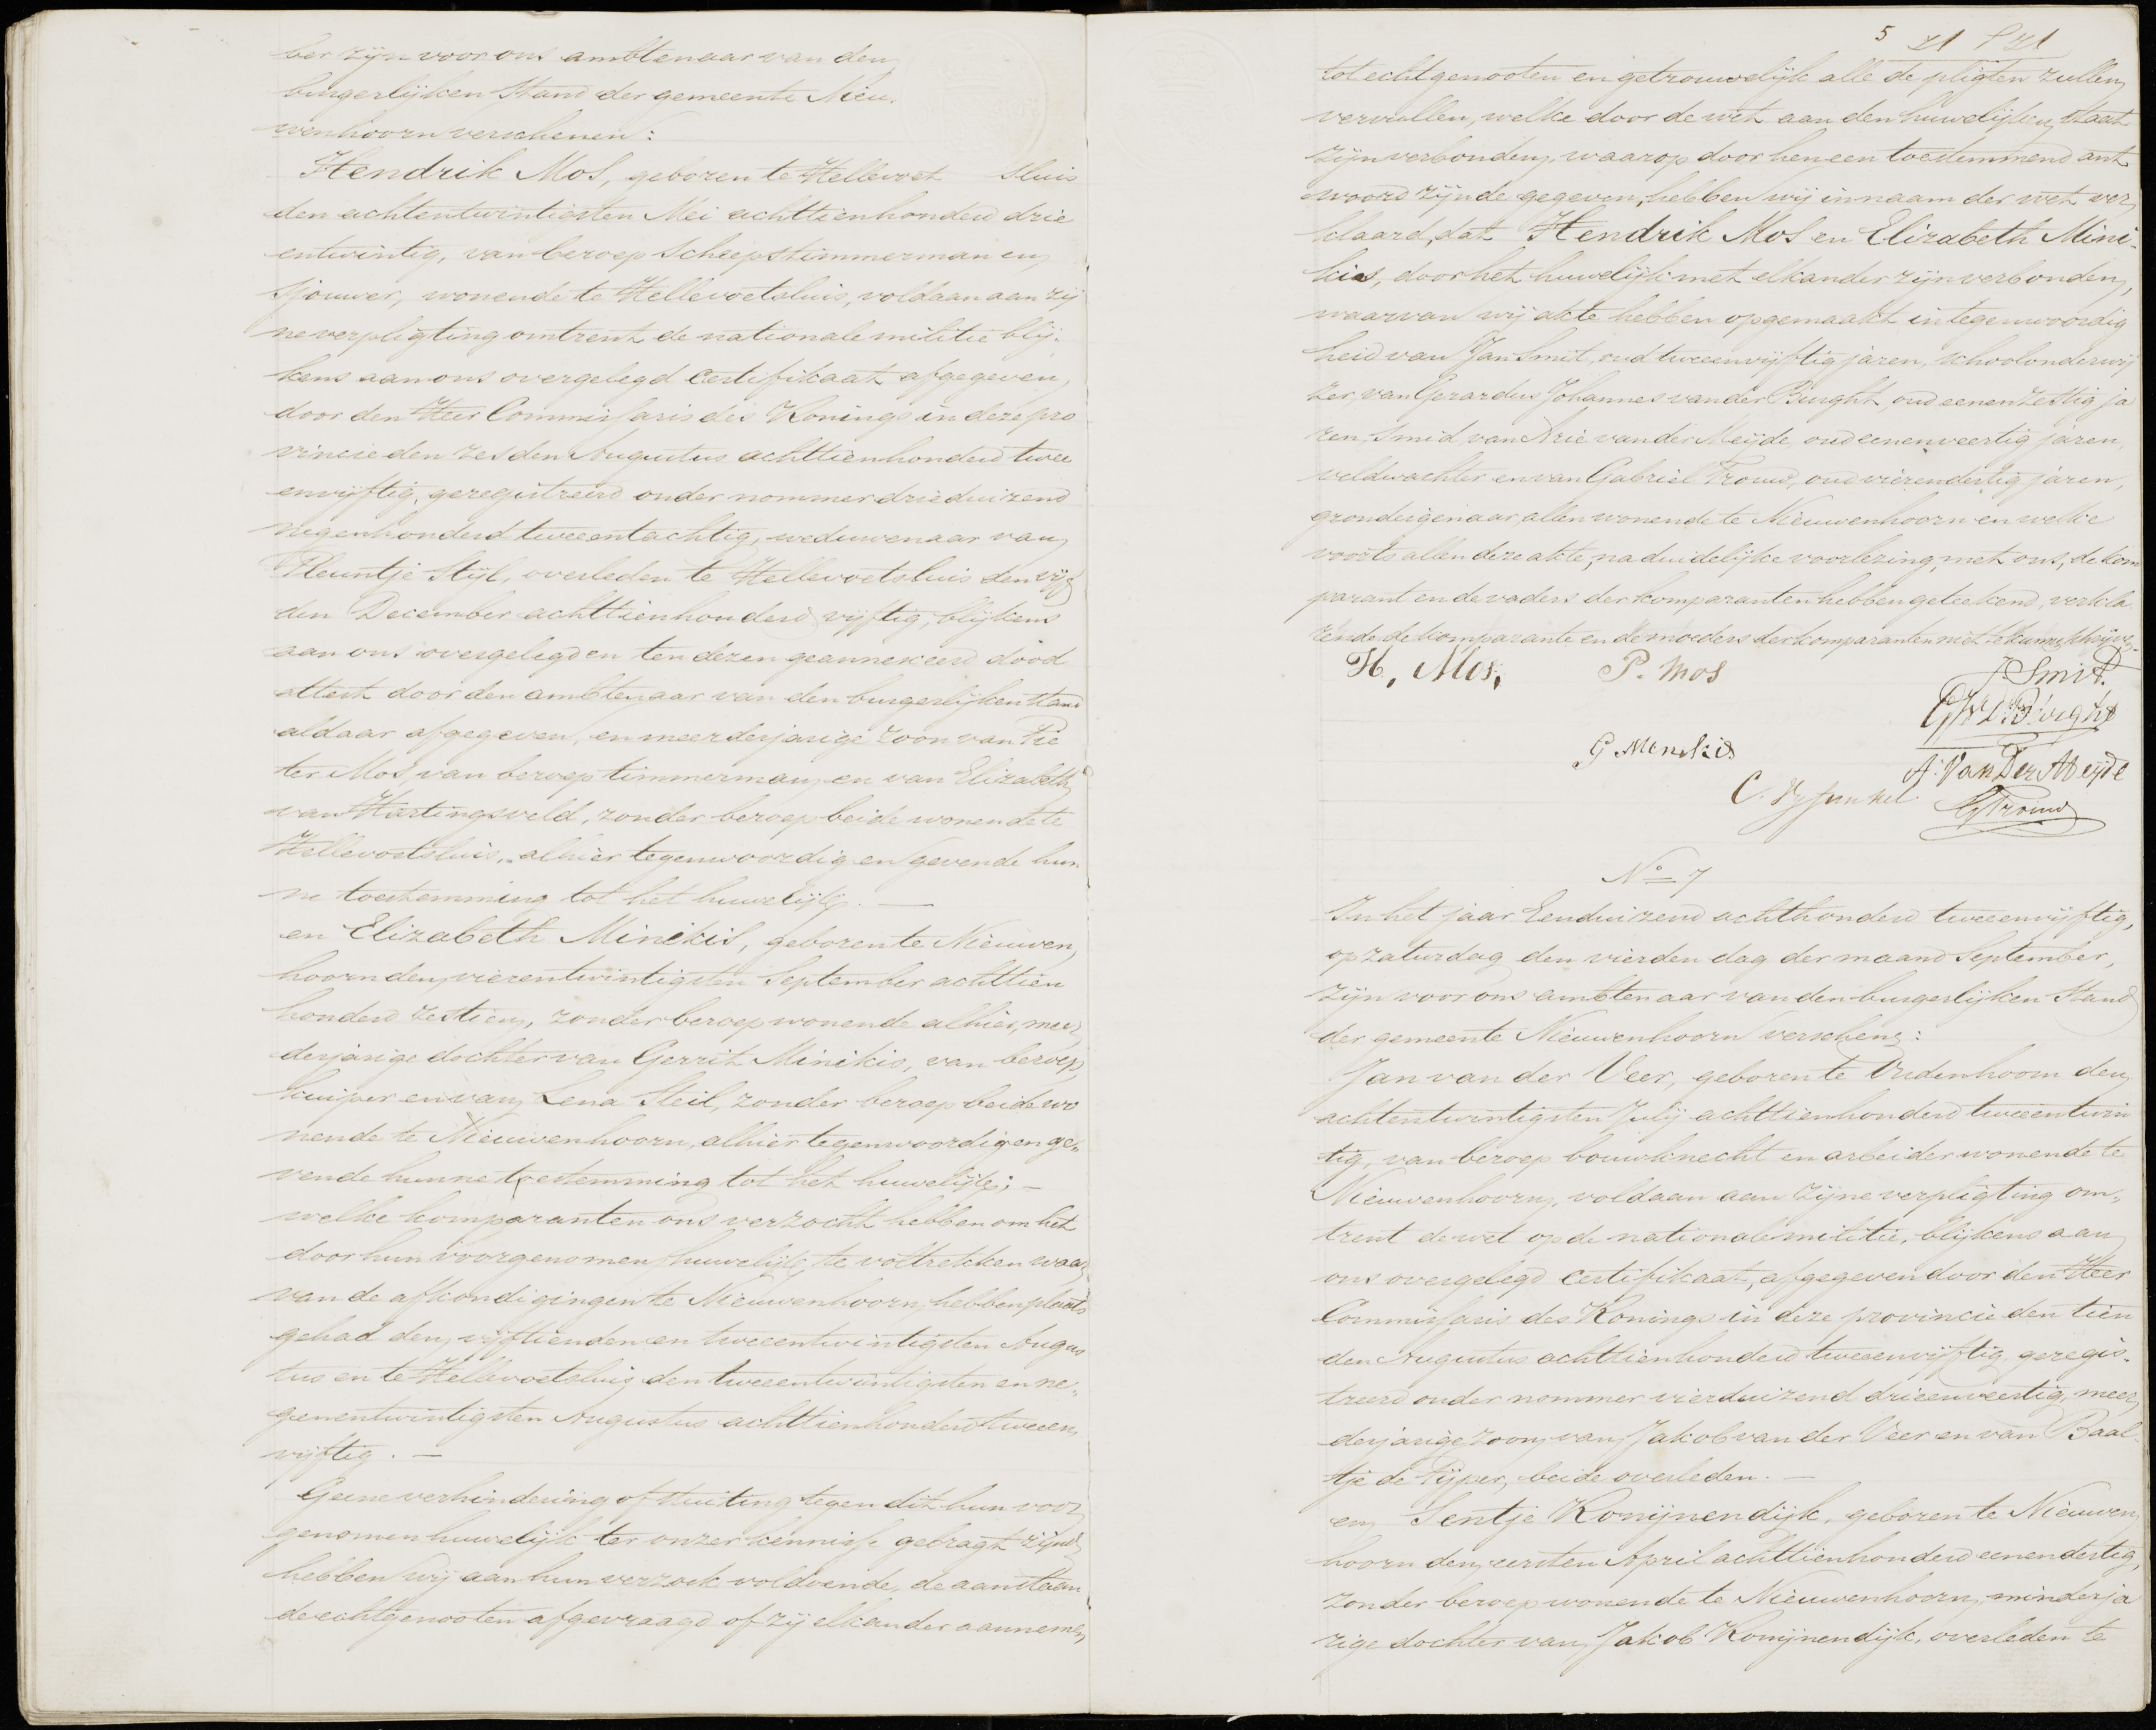 ber zijn voor ons ambtenaar van den
burgerlijken Stand der gemeente Nieu,
wenhoorn verschenen:
Hendrik Mos, geboren te Hellevoet sluis
den achtentwintigsten Mei achttienhonderd drie
entwintig, van beroep Scheepstimmerman en
sjouwer, wonende te Hellevoetsluis, voldaan aan zij
ne verpligting omtrent de nationale militie blij,
kens aan ons overgelegd Certifikaat afgegeven,
door den Heer Commissaris des Konings in deze pro
vincie den zesden Augustus achttienhonderd twee
envijftig, geregistreerd onder nommer drieduizend
negenhonderd tweeentachtig, weduwenaar van
Pleuntje Stijl, overleden te Hellevoetsluis den vijf
den December achttienhonderd vijftig, blijkens
aan ons overgelegd en ten dezen geannexeerd dood
attest door den ambtenaar van den burgerlijken stand
aldaar afgegeven, en meerderjarige zoon van Pie
ter Mos, van beroep timmerman, en van Elizabeth
van Hartingsveld, zonder beroep beide wonende te
Hellevoetsluis, alhier tegenwoordig en gevende hun
ne toestemming tot het huwelijk. —
en Elizabeth Minikis, geboren te Nieuwen,
hoorn den vierentwintigsten September achttien
honderd zestien, zonder beroep wonende alhier, meer
derjarige dochter van Gerrit Minikis, van beroep
kuiper en van Lena Steil, zonder beroep beide wo
nende te Nieuwenhoorn, alhier tegenwoordig en ge,
vende hunne toestemming tot het huwelijk; —
welke komparanten ons verzocht hebben om het
door hun voorgenomen huwelijk te voltrekken waar
van de afkondigingen te Nieuwenhoorn, hebben plaats
gehad den vijftienden en tweeentwintigsten Augus
tus en te Hellevoetsluis den tweeentwintigsten en ne,
genentwintigsten Augustus achttienhonderd tweeen
vijftig. —
Geene verhindering of stuiting tegen dit hun voor
genomen huwelijk ter onzer kennisse gebragt zijnde
hebben wij aan hun verzoek voldoende, de aanstaan
de echtgenooten afgevraagd of zij elkander aannemen
5
tot echtgenooten en getrouwelijk alle de pligten zullen
vervullen, welke door de wet aan den huwelijken staat
zijn verbonden, waarop door hen een toestemmend ant
woord zijnde gegeven, hebben wij in naam der wet ver
klaard, dat Hendrik Mos en Elizabeth Mini-
kis, door het huwelijk met elkander zijn verbonden,
waarvan wij akte hebben opgemaakt in tegenwoordig
heid van Jan Smit, oud tweeenvijftig jaren, schoolonderwij
zer, van Gerardus Johannes van der Burght, oud eenenzestig ja
ren, Smid, van Arie van der Meijde, oud eenenveertig jaren,
veldwachter en van Gabriel Trouw, oud vierendertig jaren,
grondeigenaar, allen wonende te Nieuwenhoorn en welke
voorts allen deze akte, na duidelijke voorlezing, met ons, de kom
parant en de vaders der komparanten hebben geteekend, verkla
rende de komparante en de moeders der komparanten niet te kunnen schrijven.
H, Mos, P. Mos J Smit.
GJVD Burght
G Menikis
A. Van Der Meijde
G Trouw
No 7
In het jaar Eenduizend achthonderd tweeenvijftig,
op zaturdag den vierden dag der maand September,
zijn voor ons ambtenaar van den burgerlijken Stand
der gemeente Nieuwenhoorn verschenen:
Jan van der Veer, geboren te Oudenhoorn den
achtentwintigsten Julij achttienhonderd tweeentwin
tig, van beroep bouwknecht en arbeider wonende te
Nieuwenhoorn, voldaan aan zijne verpligting om,
trent de wet op de nationale militie, blijkens aan
ons overgelegd certifikaat, afgegeven door den Heer
Commissaris des Konings in deze provincie den tien
den Augustus achttienhonderd tweeenvijftig, geregis-
treerd onder nommer vierduizend drieenveertig, meer
derjarige zoon van Jakob van der Veer en van Baal-
tje de Pijper, beide overleden. —
en Sentje Konijnendijk, geboren te Nieuwen,
hoorn den eersten April achttienhonderd eenendertig,
zonder beroep wonende te Nieuwenhoorn, minderja
rige dochter van Jakob Konijnendijk, overleden te